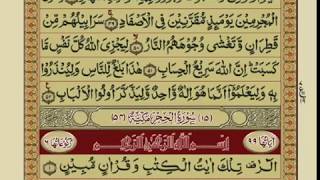 الْمُجْرِمِيْنَ يَوْمَىِٕذٍ مُّقَرَّنِيْنَ فِى الْاَصْفَادِ ﴿۴۹﴾ سَرَابِيْلُهُمْ مِّنْ
قَطِرَانٍ وَّتَغْشٰى وُجُوْهَهُمُ النَّارُ ﴿۵۰﴾ لِيَجْزِىَ اللّٰهُ كُلَّ نَفْسٍ مَّا
كَسَبَتْ ؕ اِنَّ اللّٰهَ سَرِيْعُ الْحِسَابِ ﴿۵۱﴾ هٰذَا بَلٰغٌ لِّلنَّاسِ وَلِيُنْذَرُوْا
بِهٖ وَلِيَعْلَمُوْۤا اَنَّمَا هُوَ اِلٰهٌ وَّاحِدٌ وَّلِيَذَّكَّرَ اُولُوا الْاَلْبَابِ ﴿۵۲﴾
(۱۵) سُوْرَةُ الْحِجْرِ مَكِّيَّةٌ (۵۴)
اٰيَاتُهَا ۹۹ بِسْمِ اللّٰهِ الرَّحْمٰنِ الرَّحِيْمِ رُكُوْعَاتُهَا ۶
الٓرٰ ۟ تِلْكَ اٰيٰتُ الْكِتٰبِ وَ قُرْاٰنٍ مُّبِيْنٍ ﴿۱﴾